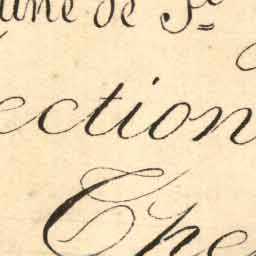 une de St
ection
Che